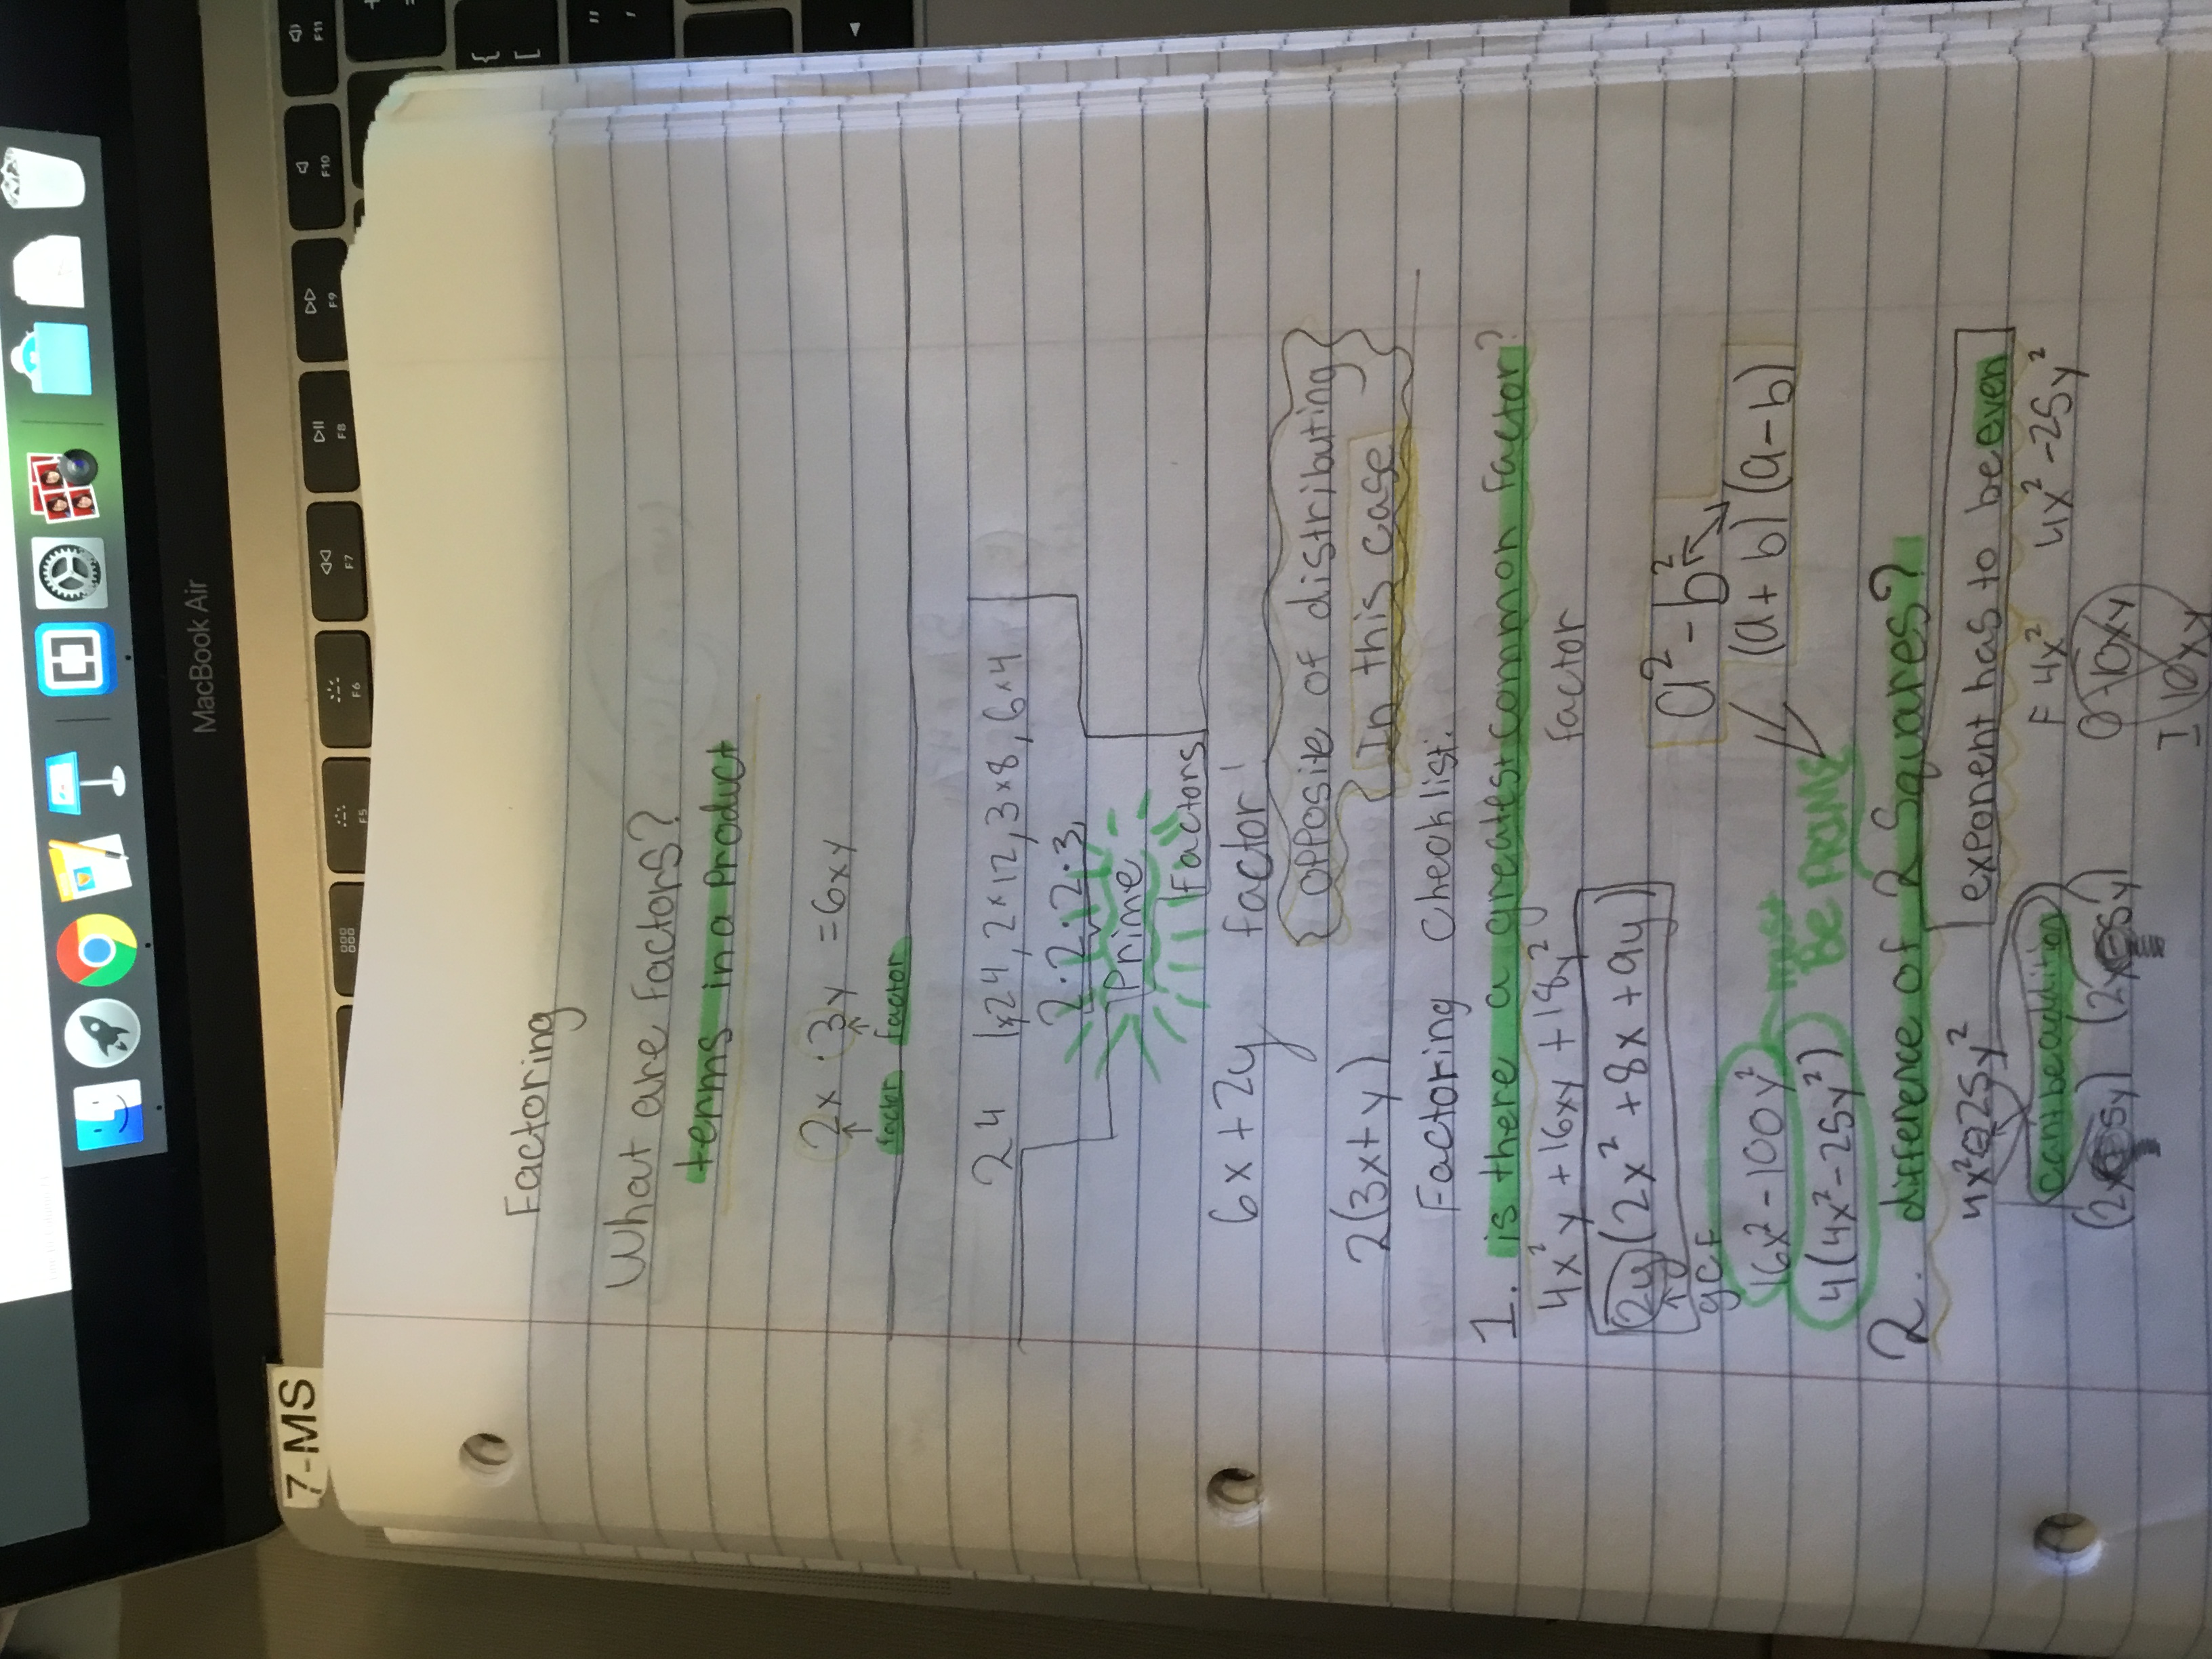 MacBook Air
7-MS
F5 F6 F7 F8 F9 F10 F11
{
[
"
'
Factoring
What are factors?
terms in a product
2x · 3y = 6xy
factor factor
24 1x24, 2x12, 3x8, 6x4
2·2·2·3
Prime
Factors
6x + 2y factor!
opposite of distributing
2(3x+y) In this case
Factoring Checklist:
1. is there a greatest common factor?
4x²y + 16xy + 18y² factor
2y(2x² + 8x + 9y)
gCF
a² - b²
16x² - 100y² must (a + b) (a - b)
4(4x² - 25y²) Be PRIME
2. difference of 2 Squares?
4x² - 25y² exponent has to be even
can't be addition F 4x² 4x² - 25y²
(2x 5y) (2x 5y) O -10xy
I 10xy